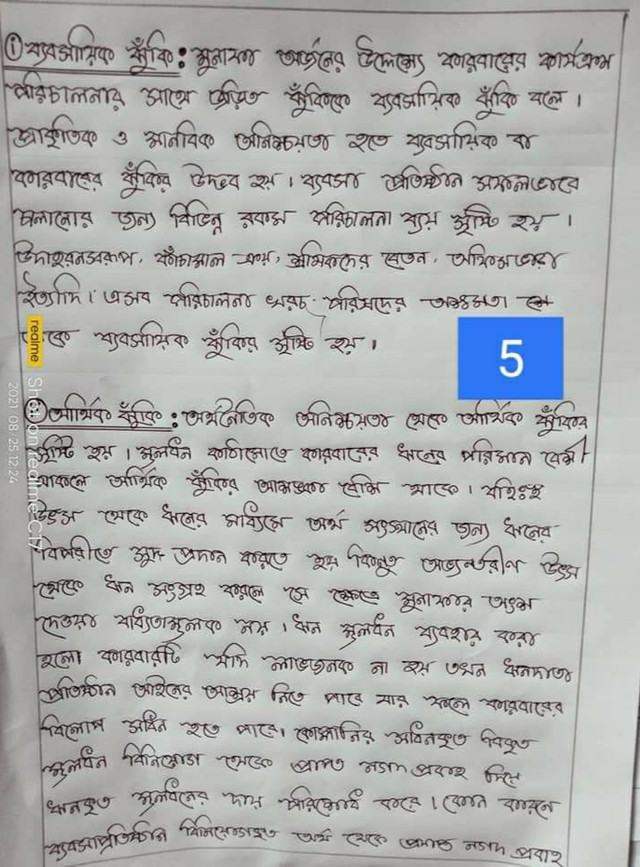 ① ব্যবসায়িক ঝুঁকি : মুনাফা অর্জনের উদ্দেশ্যে কারবারের কার্যক্রম
পরিচালনার সাথে জড়িত ঝুঁকিকে ব্যবসায়িক ঝুঁকি বলে ।
প্রাকৃতিক ও মানবিক অনিশ্চয়তা হতে ব্যবসায়িক বা
কারবারের ঝুঁকির উদ্ভব হয় । ব্যবসা প্রতিষ্ঠান সফলভাবে
চালানোর জন্য বিভিন্ন রকম পরিচালনা ব্যয় সৃষ্টি হয় ।
উদাহরনস্বরূপ, কাঁচামাল ক্রয়, শ্রমিকদের বেতন, অফিসভাড়া
ইত্যাদি । এসব পরিচালনা খরচ পরিশোধের অক্ষমতা
থেকে ব্যবসায়িক ঝুঁকির সৃষ্টি হয় ।
5
② আর্থিক ঝুঁকি : অর্থনৈতিক অনিশ্চয়তা থেকে আর্থিক ঝুঁকির
সৃষ্টি হয় । মূলধন কাঠামোতে কারবারের ঋনের পরিমান বেশী
থাকলে আর্থিক ঝুঁকির আশঙ্কা বেশি থাকে । বহিঃস্থ
উৎস থেকে ঋনের মাধ্যমে অর্থ সংস্থানের জন্য ঋনের
বিপরীতে সুদ প্রদান করতে হয় কিন্তু অভ্যন্তরীণ উৎস
থেকে ঋন সংগ্রহ করলে সে ক্ষেত্রে মুনাফার অংশ
দেওয়া বাধ্যতামূলক নয় । ঋন মূলধন ব্যবহার করা
হলো কারবারটি যদি লাভজনক না হয় তখন ঋনদাতা
প্রতিষ্ঠান আইনের আশ্রয় নিতে পারে যার ফলে কারবারের
বিলোপ সাধন হতে পারে। কোম্পানির
মূলধন বিনিয়োগ থেকে প্রাপ্ত নগদ প্রবাহ দিয়ে
ঋনকৃত মূলধনের দায় পরিশোধ করে । কোন কারনে
ব্যবসাপ্রতিষ্ঠান বিনিয়োগকৃত অর্থ থেকে প্রাপ্ত নগদ প্রবাহ
realme
Shot on realme C17
2021.08.25 12:24